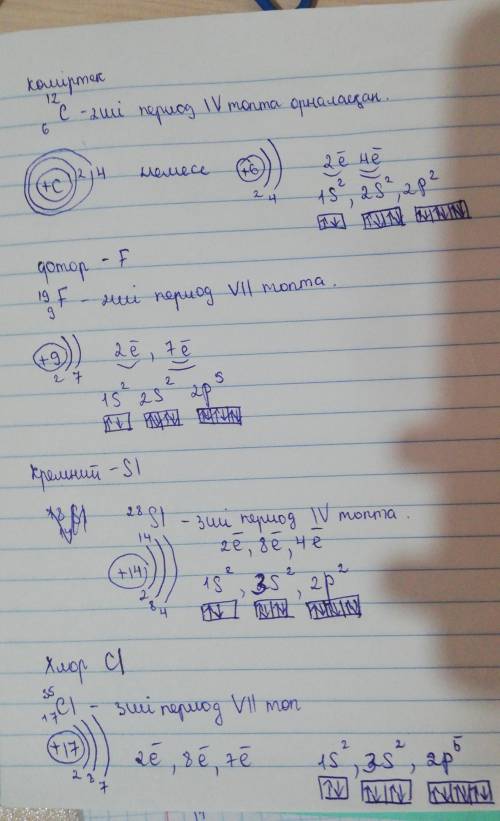 көміртек
12
6 C - 2ші период IV топта орналасқан.
+C 2 4 немесе +6 2 4 2ē 4ē
1S², 2S², 2p²
фтор - F
19
9 F - 2ші период VII топта.
+9 2 7 2ē, 7ē
1S² 2S² 2p⁵
Кремний - SI
28
14 SI - 3ші период IV топта.
2ē, 8ē, 4ē
+14 2 8 4 1S², 3S², 2p²
Хлор Cl
35
17 Cl - 3ші период VII топ
+17 2 8 7 2ē, 8ē, 7ē 1S², 3S², 2p⁵